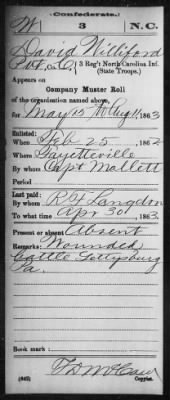 (Confederate.)
W 3 N.C.
David Williford
Pvt, Co. C, 3 Reg't North Carolina Inf.
(State Troops.)
Appears on
Company Muster Roll
of the organization named above,
for May 15 to Aug 11, 1863
Enlisted:
When Feb 25, 1862
Where Fayetteville
By whom Capt Mallett
Period
Last paid:
By whom R H Langdon
To what time Apr 30, 1863.
Present or absent Absent
Remarks: Wounded
battle Gettysburg
Pa.
Book mark:
(642) Copyist.